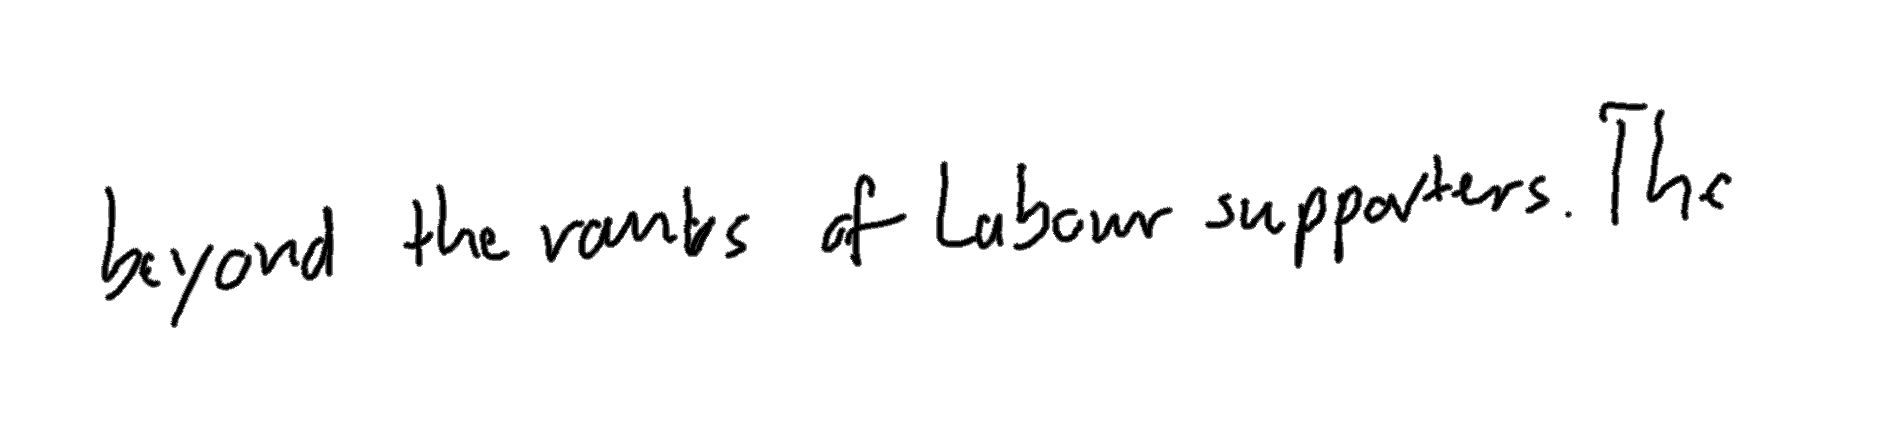 beyond the ranks of Labour supporters. The